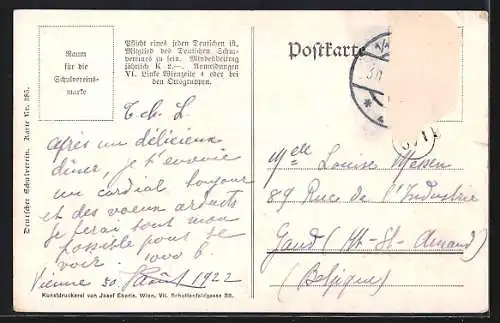 Raum
für die
Schulvereins-
marke
Pflicht eines jeden Deutschen ist,
Mitglied des Deutschen Schul-
vereines zu sein. Mindestbeitrag
jährlich K 2.—. Anmeldungen
VI. Linke Wienzeile 4 oder bei
den Ortsgruppen.
Deutscher Schulverein. Karte Nr. 285.
T. ch. L.
Après un délicieux
dîner, je t'envoie
un cordial bonjour
et des voeux ardents
je ferai tout mon
possible pour te
voir. 1000 b.
Vienne 30. Août 1922
Kunstdruckerei von Josef Eberle, Wien, VII. Schottenfeldgasse 38.
Postkarte
Melle Louise
89 Rue de l'Industrie
Gand (Mt-St-Amand)
(Belgique)